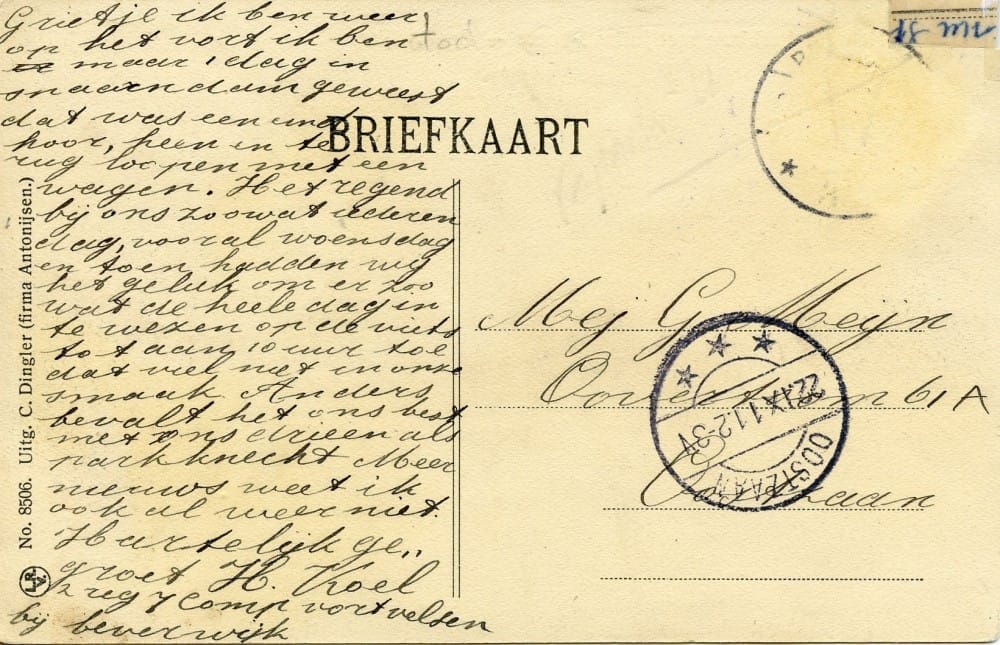 Grietje ik ben weer
op het vort ik ben
maar 1 dag in
maarn dam geweest
dat was een
hoor, heen en te
rug loopen met een
wagen. Het regend
bij ons zoowat iederen
dag, vooral woensdag
en toen hadden wij
het geluk om er zoo
wat de heele dag in
te wezen op de
tot aan 10 uur toe
dat viel niet in onze
smaak Anders
bevalt het ons best
met ons drieen als
parkknecht Meer
nieuws weet ik
ook al weer niet.
Hartelijk ge,,
groet H. Koel
2 reg 4 comp vort velsen
bij beverwijk
BRIEFKAART
Mej G. Meijn
61 A
Oostzaan
22.IX.11.2-3V
OOSTZAAN
No. 8506. Uitg. C. Dingler (firma Antonijsen.)
L.R.
V.